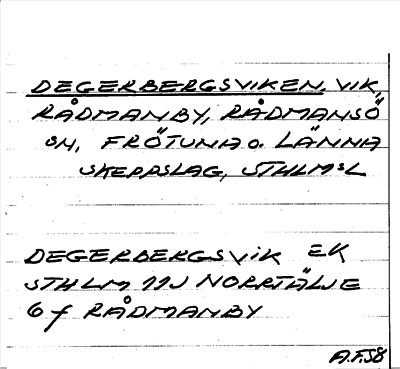 DEGERBERGSVIKEN, VIK,
RÅDMANBY, RÅDMANSÖ
SN, FRÖTUNA O. LÄNNA
SKEPPSLAG, STHLMSL
DEGERBERGSVIK EK
STHLM 11J NORRTÄLJE
6 f RÅDMANBY
A.F.58